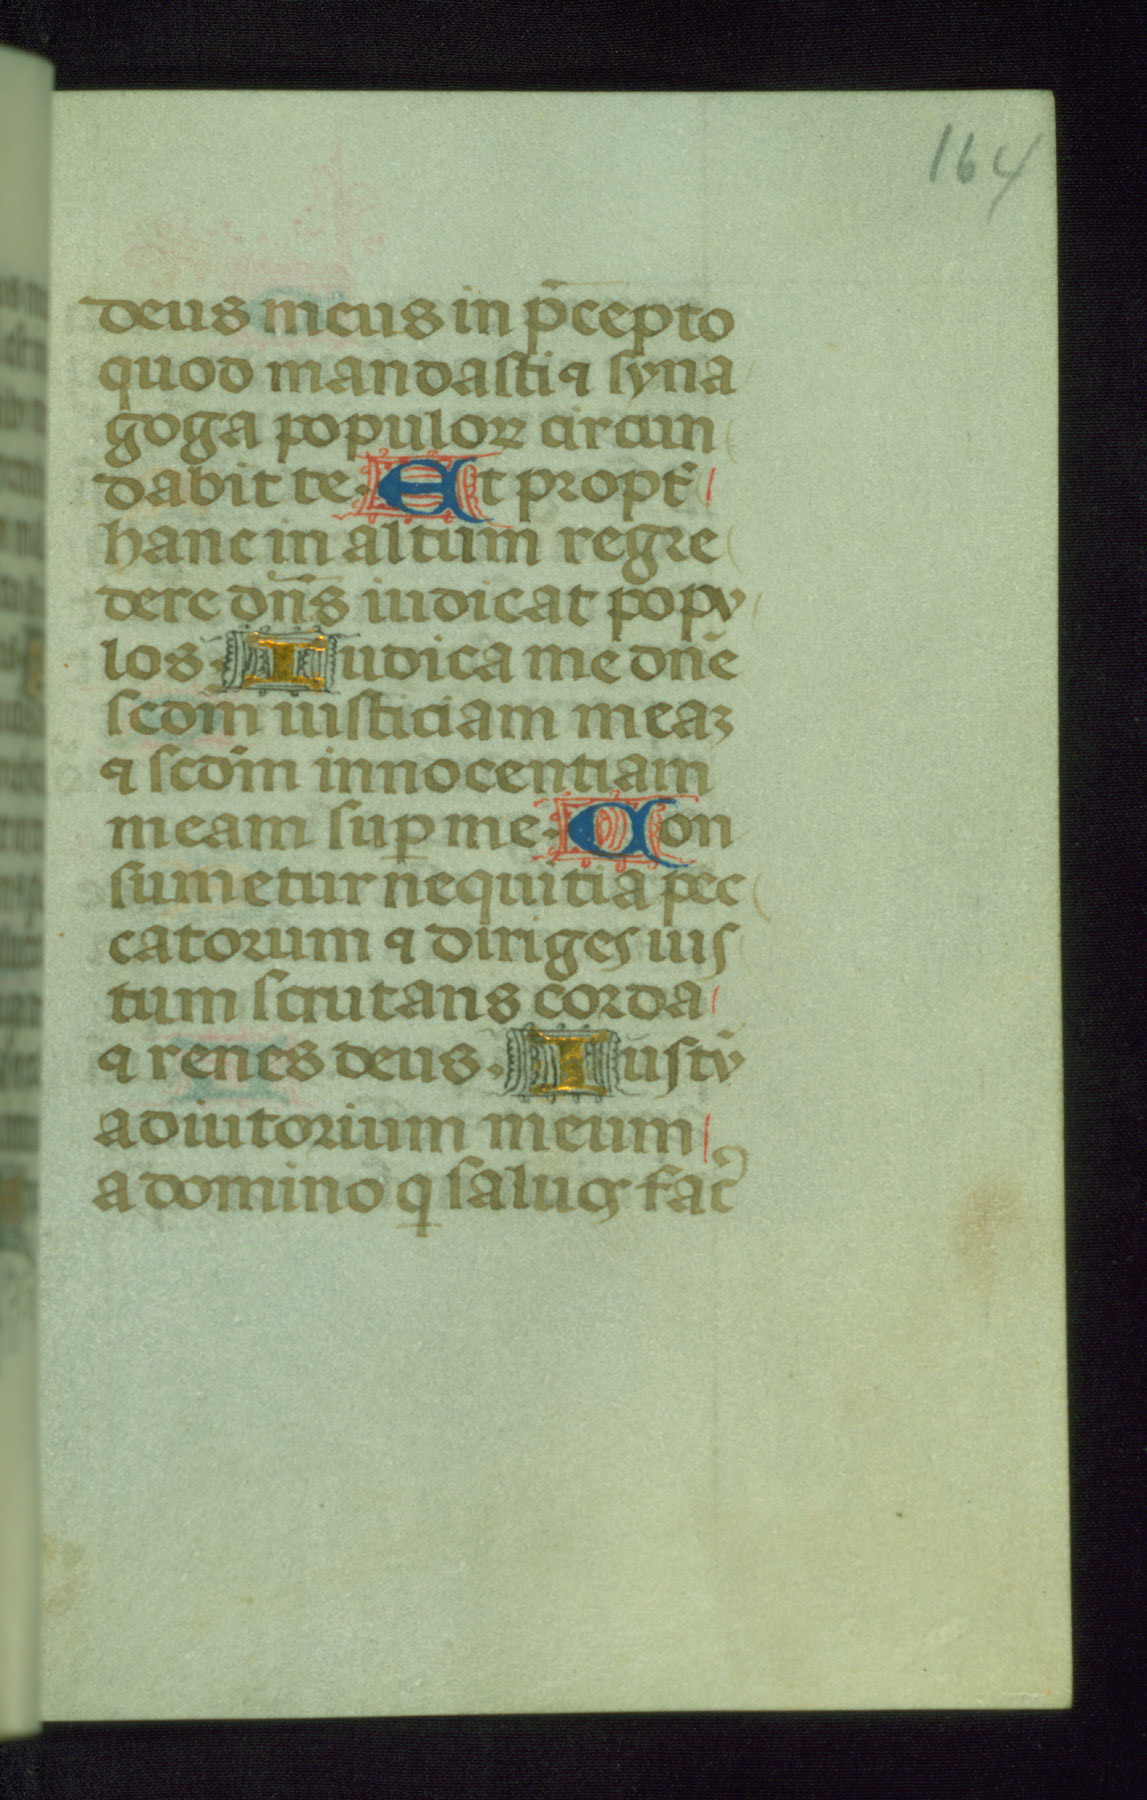 164
deus meus in p̄cepto
quod mandasti ⁊ syna
goga populoꝝ circum
dabit te. Et propt̄
hanc in altum regre
dere dn̄s iudicat popu
los. Iudica me dn̄e
scdm̄ iusticiam meaꝫ
⁊ scdm̄ innocentiam
meam suꝑ me. Con
sumetur nequitia pec
catorum ⁊ diriges ius
tum scrutans corda
⁊ renes deus. Iustū
adiutorium meum
a domino q̄ saluos fac̄